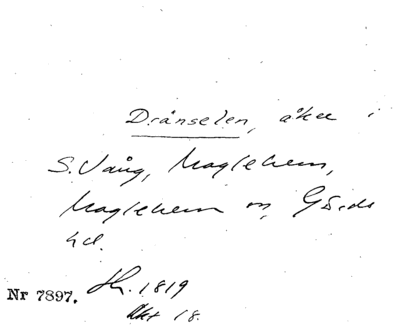 Drånselen, åker i
S. Vång, Maglehem,
Maglehem sn, Gärds
hd.
Nr 7897. Sk. 1819
Akt 18.